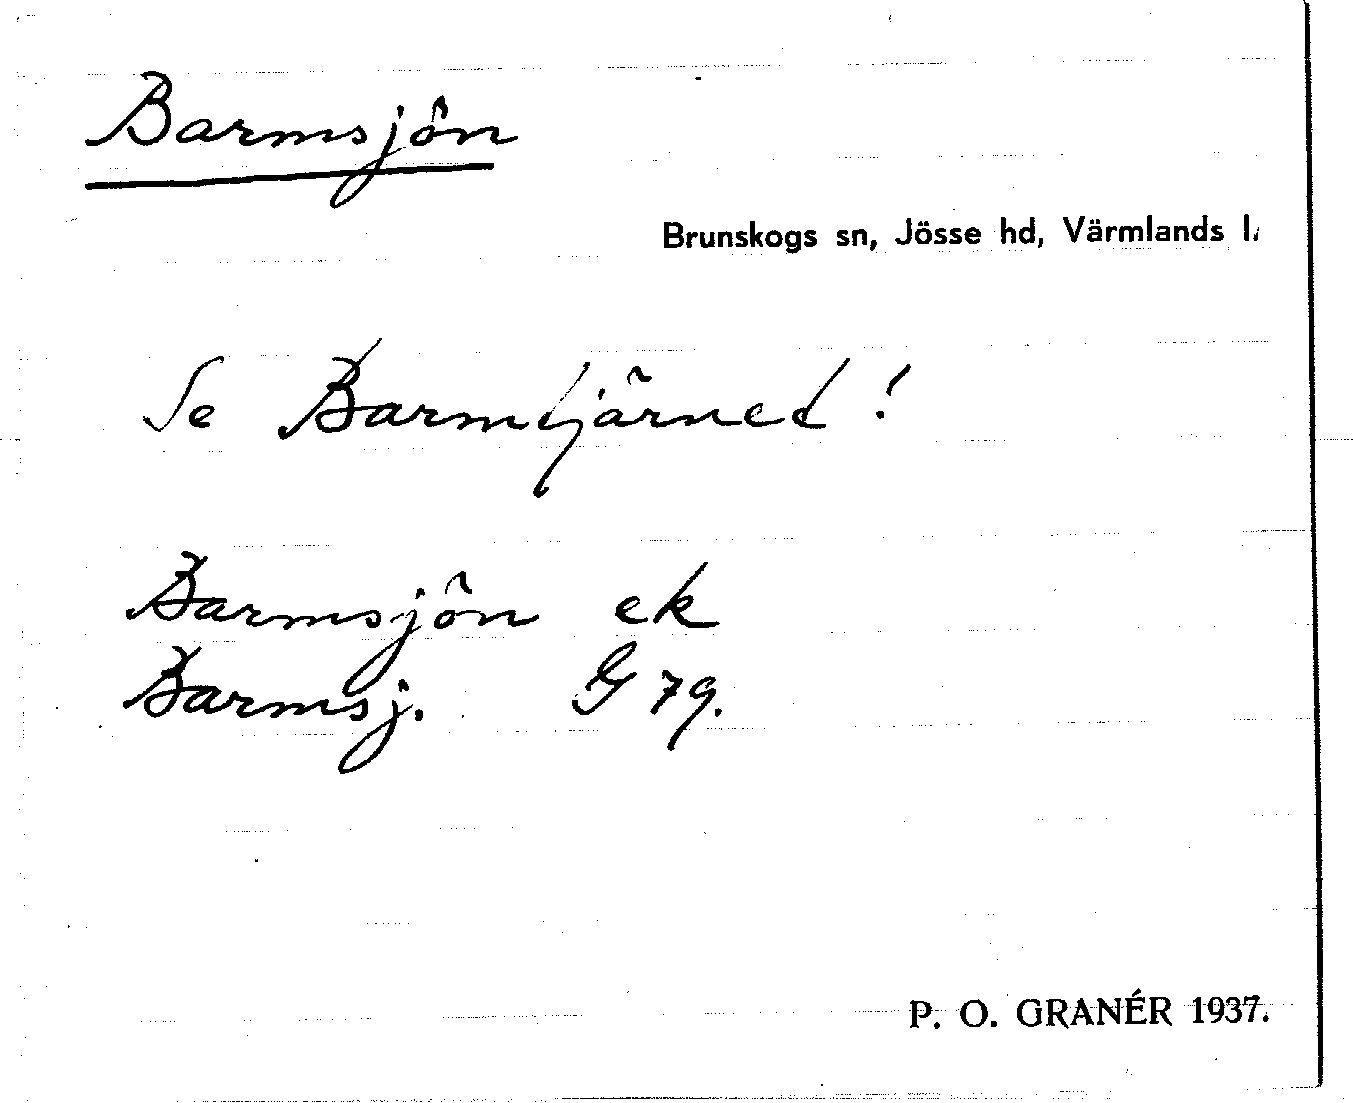 Barmsjön
Brunskogs sn, Jösse hd, Värmlands l.
Se Barmtjärnet!
Barmsjön ek
Barmsj. G 79.
P. O. GRANÉR 1937.